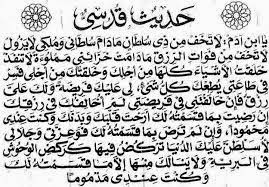 حديث قدسى
يا ابن آدم، لا تخف من ذى سلطان مادام سلطانى وملكى لا يزول
لا تخف من فوات الرزق مادامت خزائنى مملوءة لا تنفد
خلقت الأشياء كلها من أجلك وخلقتك من أجلى فسر
فى طاعتى يطعك كل شئ لى عليك فريضة ولك على
رزق فإن خالفتنى فى فريضتى لم أخالفك فى رزقك
إن رضيت بما قسمته لك أرحت قلبك وبدنك وكنت عندى
محمودا، وإن لم ترض بما قسمته لك فوعزتى وجلالى
لأسلطن عليك الدنيا تركض فيها كركض الوحوش
فى البرية ولا ينالك منها إلا ما قسمته لك
وكنت عندى مذموما